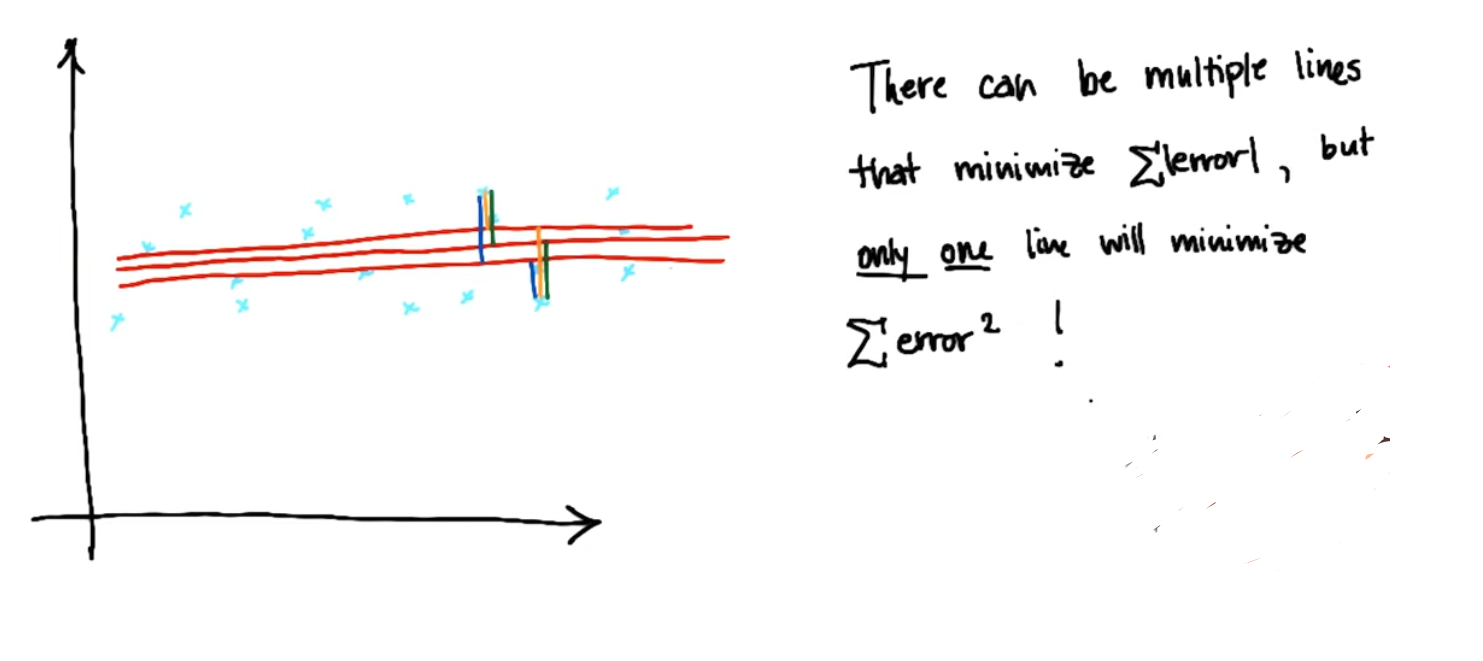 There can be multiple lines
that minimize Σ|error|, but
only one line will minimize
Σ error² !